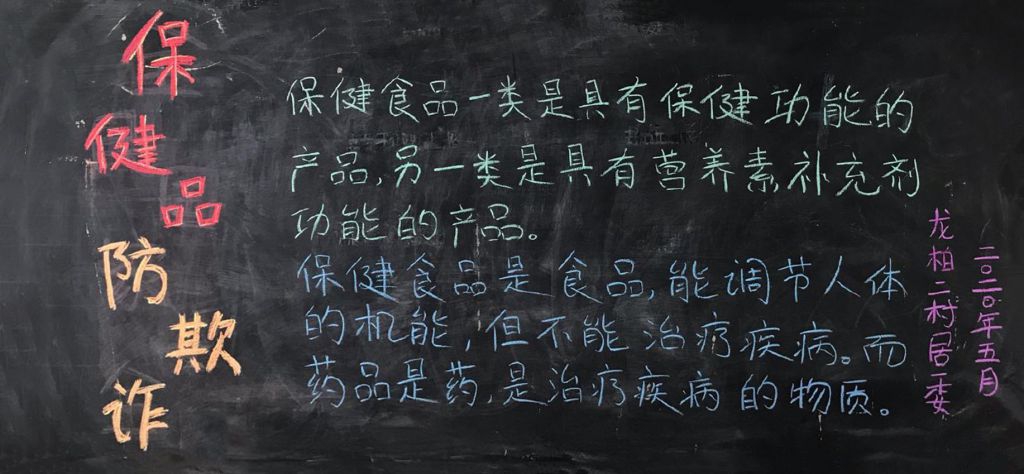 保健品
防欺诈
保健食品一类是具有保健功能的
产品,另一类是具有营养素补充剂
功能的产品。
保健食品是食品,能调节人体
的机能,但不能治疗疾病。而
药品是药,是治疗疾病的物质。
龙柏二村居委
二〇二〇年五月